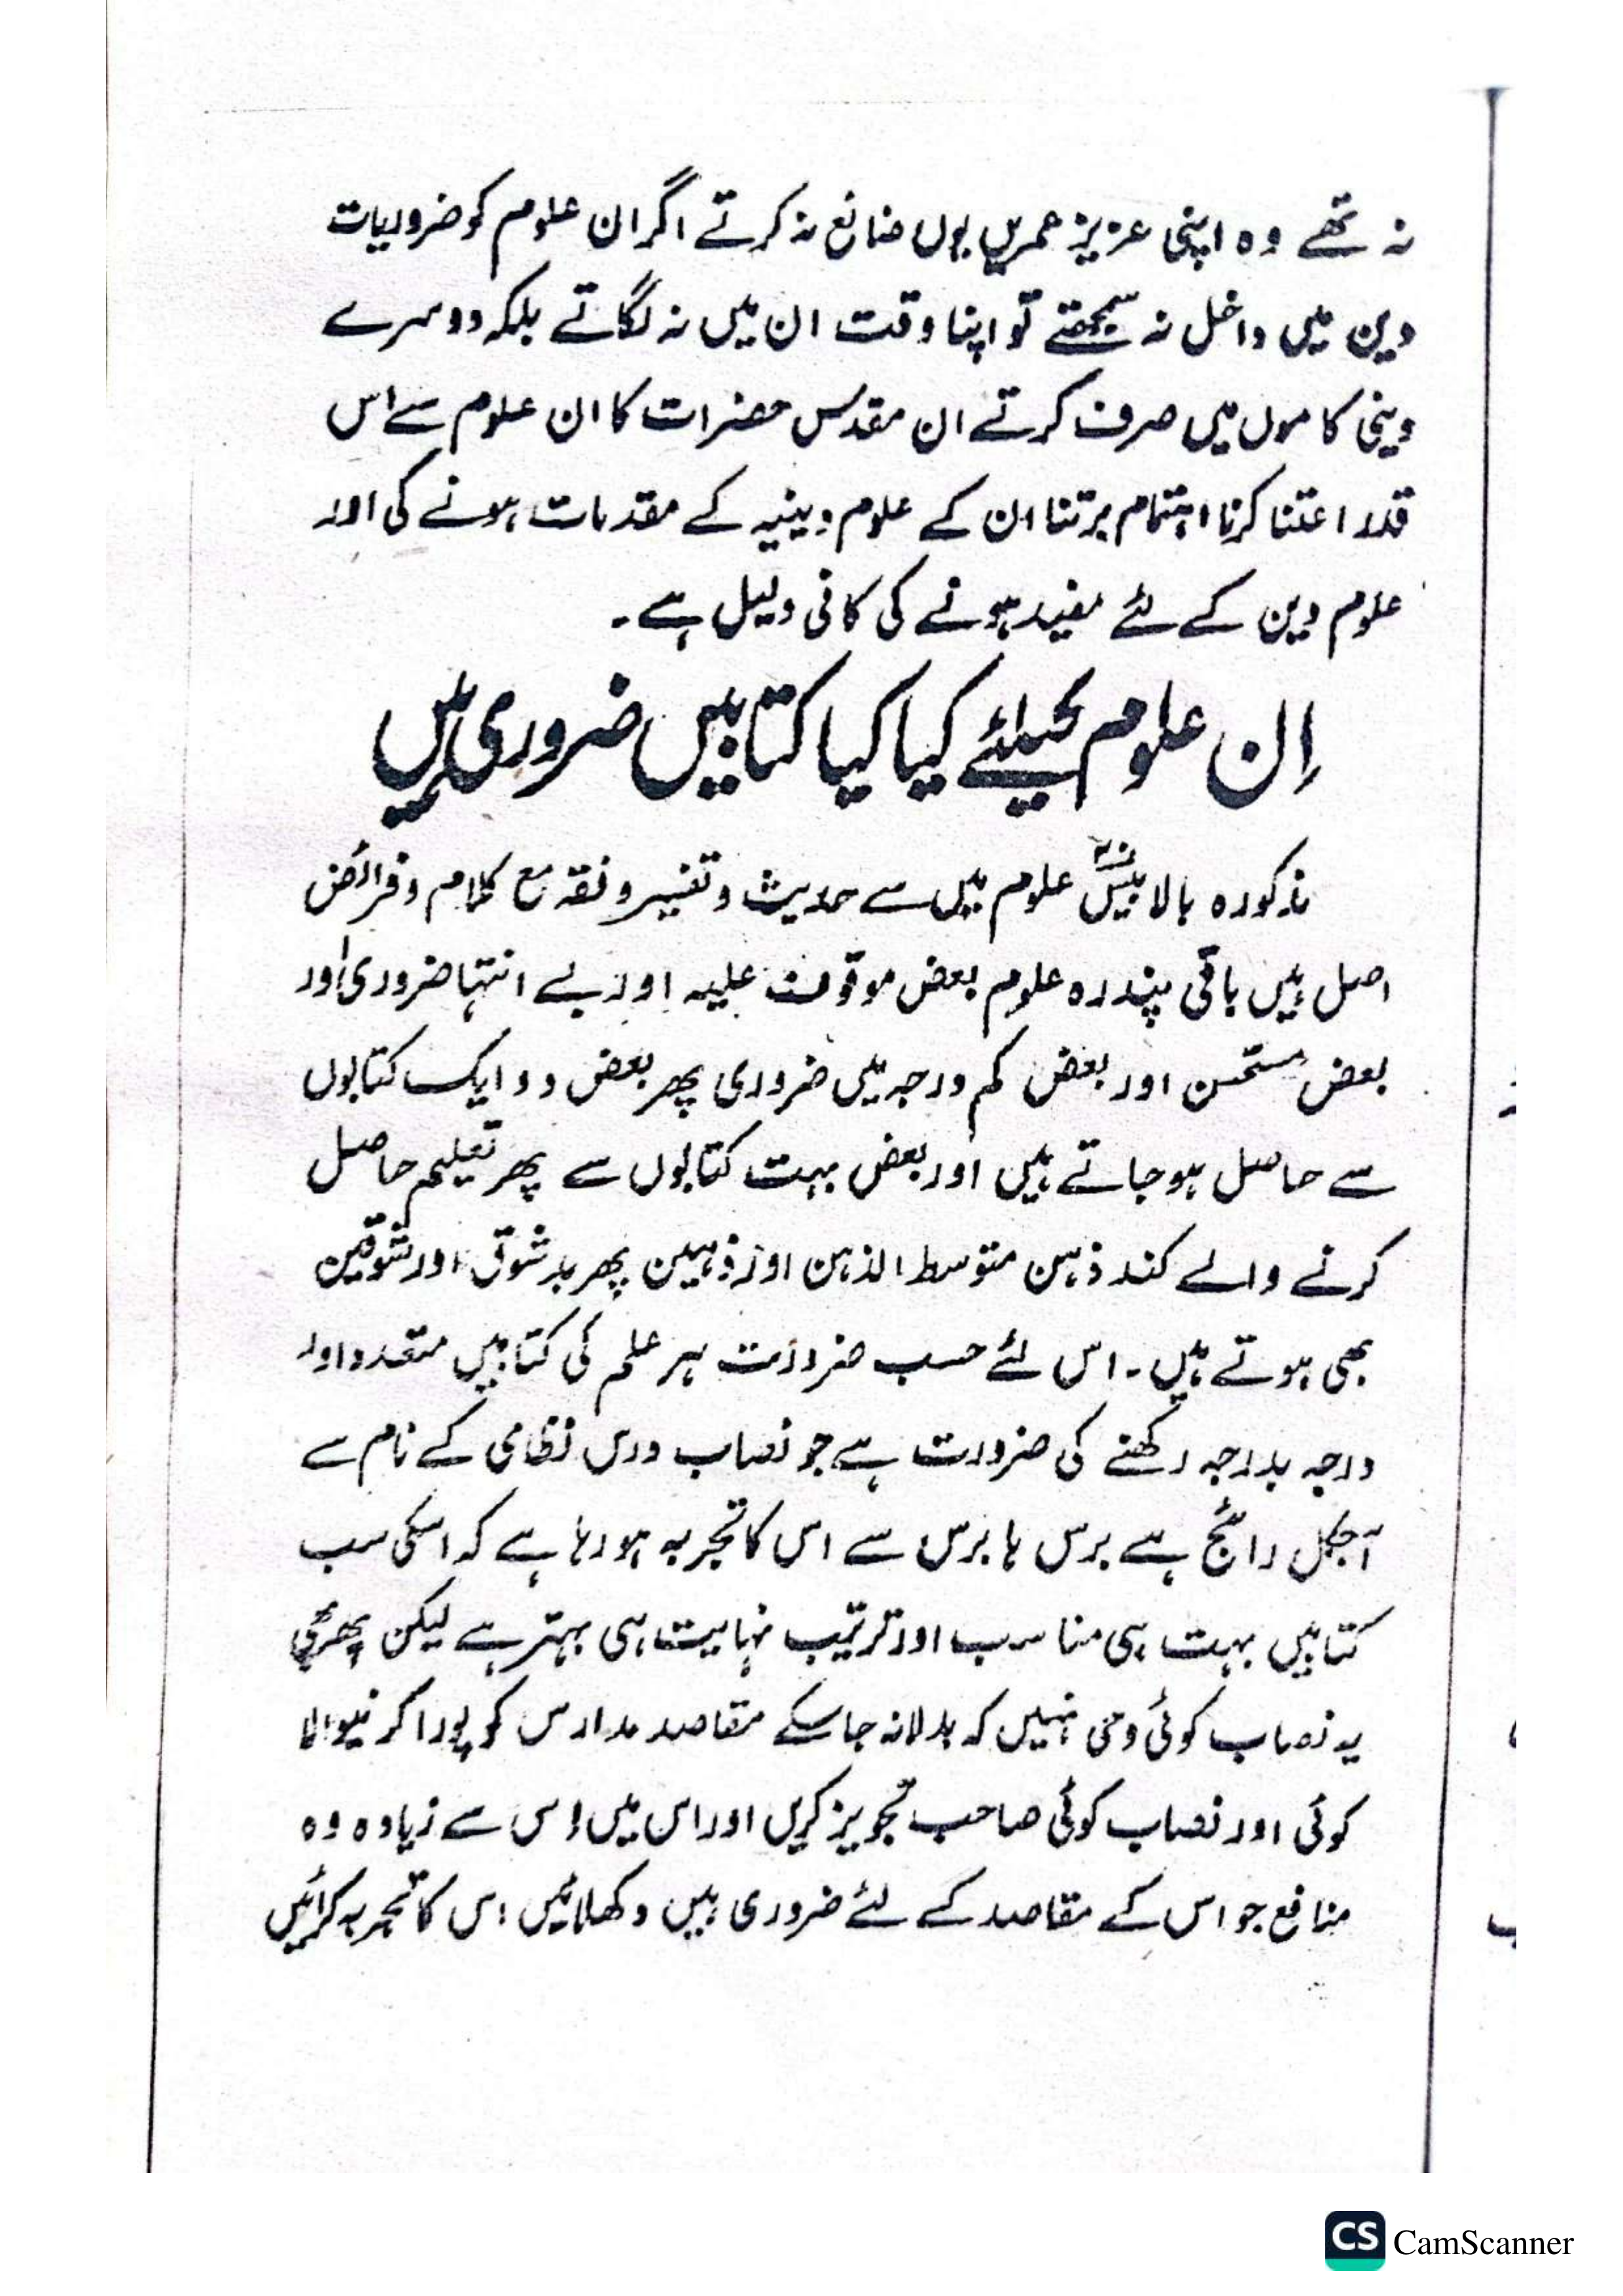 نہ تھے وہ اپنی عزیز عمریں یوں ضائع نہ کرتے اگر ان علوم کو ضروریات
دین میں داخل نہ سمجھتے تو اپنا وقت ان میں نہ لگاتے بلکہ دوسرے
دینی کاموں میں صرف کرتے ان مقدس حضرات کا ان علوم سے اس
قدر اعتنا کرنا اہتمام برتنا ان کے علوم دینیہ کے مقدمات ہونے کی اور
علوم دین کے لئے مفید ہونے کی کافی دلیل ہے۔
اِن علوم کیلئے کیا کیا کتابیں ضروری ہیں
مذکورہ بالا بیسؔ علوم میں سے حدیث و تفسیر و فقہ مع کلام و فرائض
اصل ہیں باقی پندرہ علوم بعض موقوف علیہ اور بے انتہا ضروری اور
بعض مستحسن اور بعض کم درجہ میں ضروری پھر بعض دو ایک کتابوں
سے حاصل ہو جاتے ہیں اور بعض بہت کتابوں سے پھر تعلیم حاصل
کرنے والے کند ذہن متوسط الذہن اور ذہین پھر بدشوق اور شوقین
بھی ہوتے ہیں۔ اس لئے حسب ضرورت ہر علم کی کتابیں متعدد اور
درجہ بدرجہ رکھنے کی ضرورت ہے جو نصاب درس نظامی کے نام سے
آجکل رائج ہے برس ہا برس سے اس کا تجربہ ہو رہا ہے کہ اسکی سب
کتابیں بہت ہی مناسب اور ترتیب نہایت ہی بہتر ہے لیکن پھر بھی
یہ نصاب کوئی وحی نہیں کہ بدلا نہ جا سکے مقاصد مدارس کو پورا کرنیوالا
کوئی اور نصاب کوئی صاحب تجویز کریں اور اس میں اِس سے زیادہ وہ
منافع جو اس کے مقاصد کے لئے ضروری ہیں دکھلائیں اس کا تجربہ کرائیں
CS CamScanner